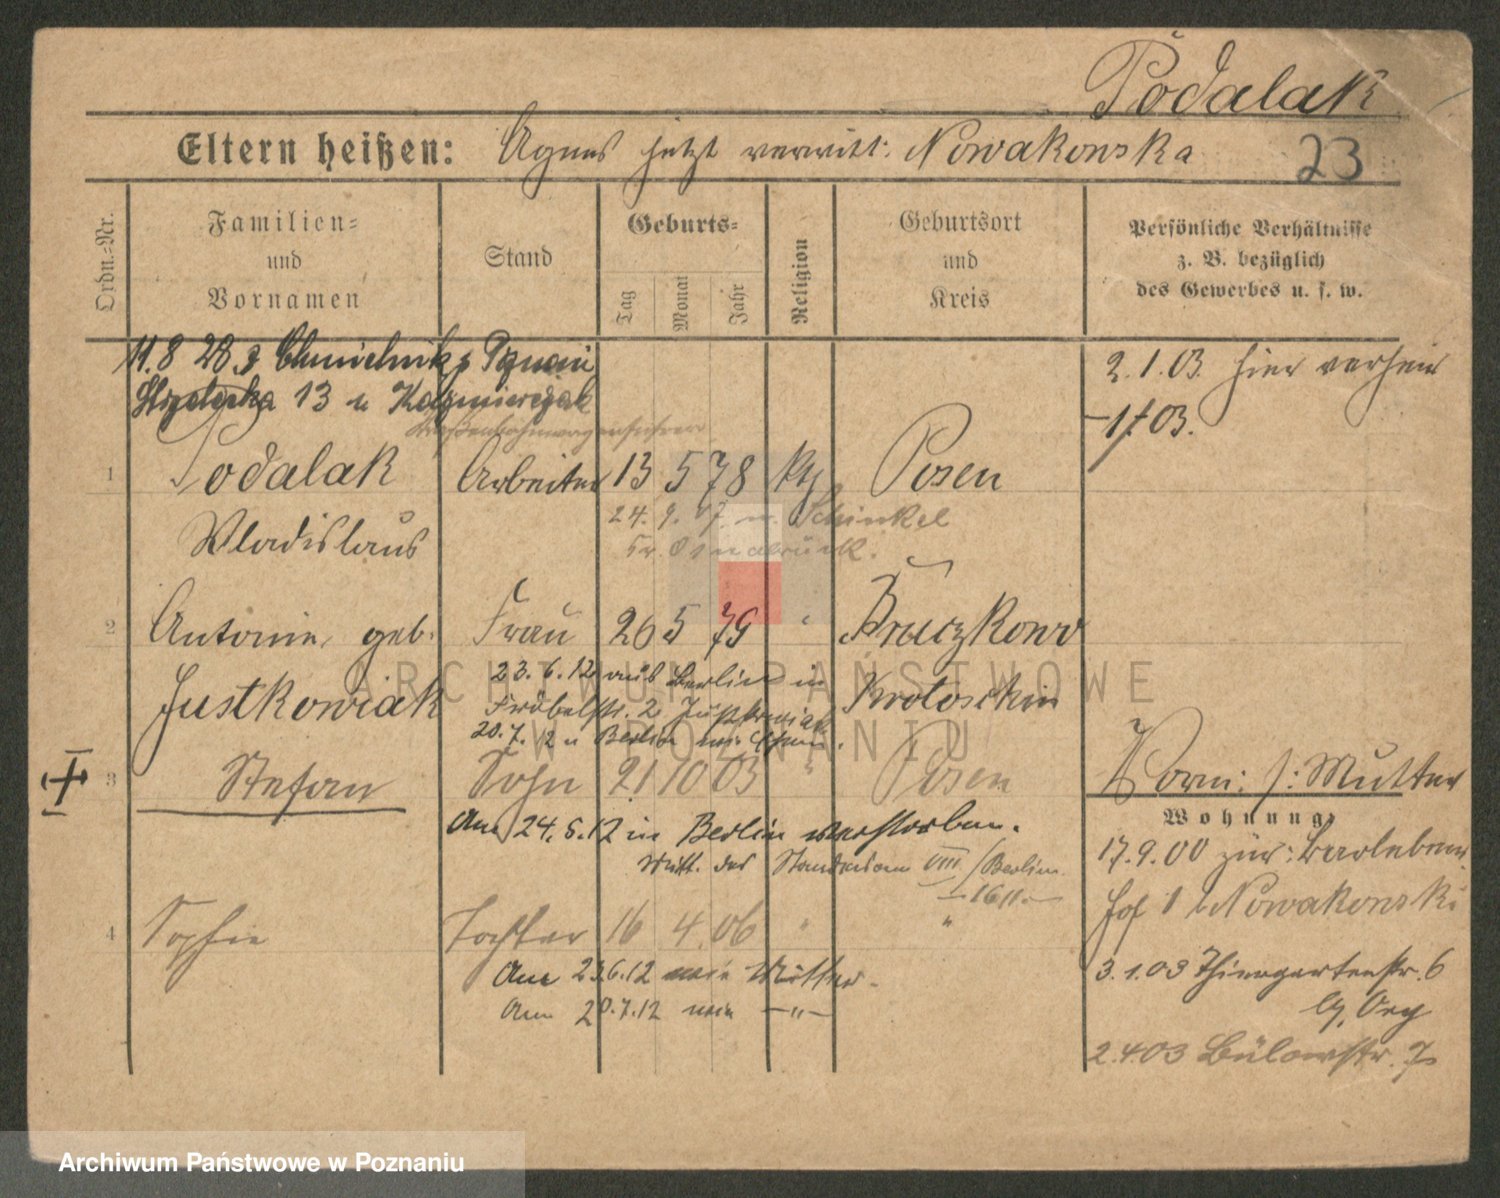 Podalak
Eltern heißen: Agnes jetzt verwitt: Nowakowska
23
Ordn.-Nr.
Familien-
und
Vornamen
Stand
Geburts-
Tag
Monat
Jahr
Religion
Geburtsort
und
Kreis
Persönliche Verhältnisse
z. B. bezüglich
des Gewerbes u. s. w.
11.8 28 z Chmielnik, Poznań
13 u Kazmierczak
2.1.03 hier verheir
Straßenbahnwagenführer
1 Podalak Arbeiter 13 5 78 kth Posen
Wladislaus
24. 9. 07. n. Schinkel
Kr. Osnabrück.
2 Antonie, geb. Frau 26 5 79 " Bruczkowo
Justkowiak Krotoschin
23. 6. 12 aus Berlin in
Fröbelstr. 2 Justkowiak
20. 7. 12 n Berlin
3 Stefan Sohn 21 10 03 " Posen
Am 24. 6. 12 in Berlin verstorben.
Mitt. des Standesam VIII / Berlin
1611
4 Sophie Tochter 16 4. 06 " "
Am 23.6.12 wie Mutter.
Am 20.7.12 wie -"-
Vorm: s: Mutter
Wohnung
17. 9. 00 zur: Berleben
hof 1 b Nowakowski
3. 1. 03 Thiergartenstr. 6
2. 4 03 Bülowstr. 7
ARCHIWUM PAŃSTWOWE
W POZNANIU
Archiwum Państwowe w Poznaniu